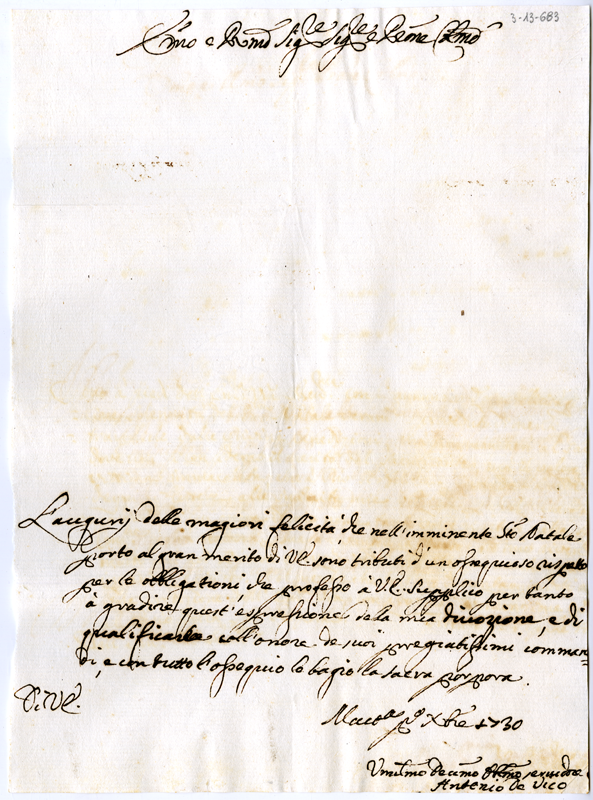 3-13-683
Emo e Rmo Sigre Sigre e Pne Colmo
L'augurij delle magiori felicità, che nell'imminente Sto Natale
porto al gran merito di V.E. sono tributi d'un ossequioso rispetto
per le obbligationi che professo à V.E. Supplico per tanto
à gradire quest'espressione della mia divozione, e di
qualificarla coll'onore de suoi pregiatissimi comman=
di, e con tutto l'ossequio le bagio la sacra porpora.
D. V.E.
Macta po Xbre 1730
Umilmo Devmo Obligmo servidore
Antonio de Vico